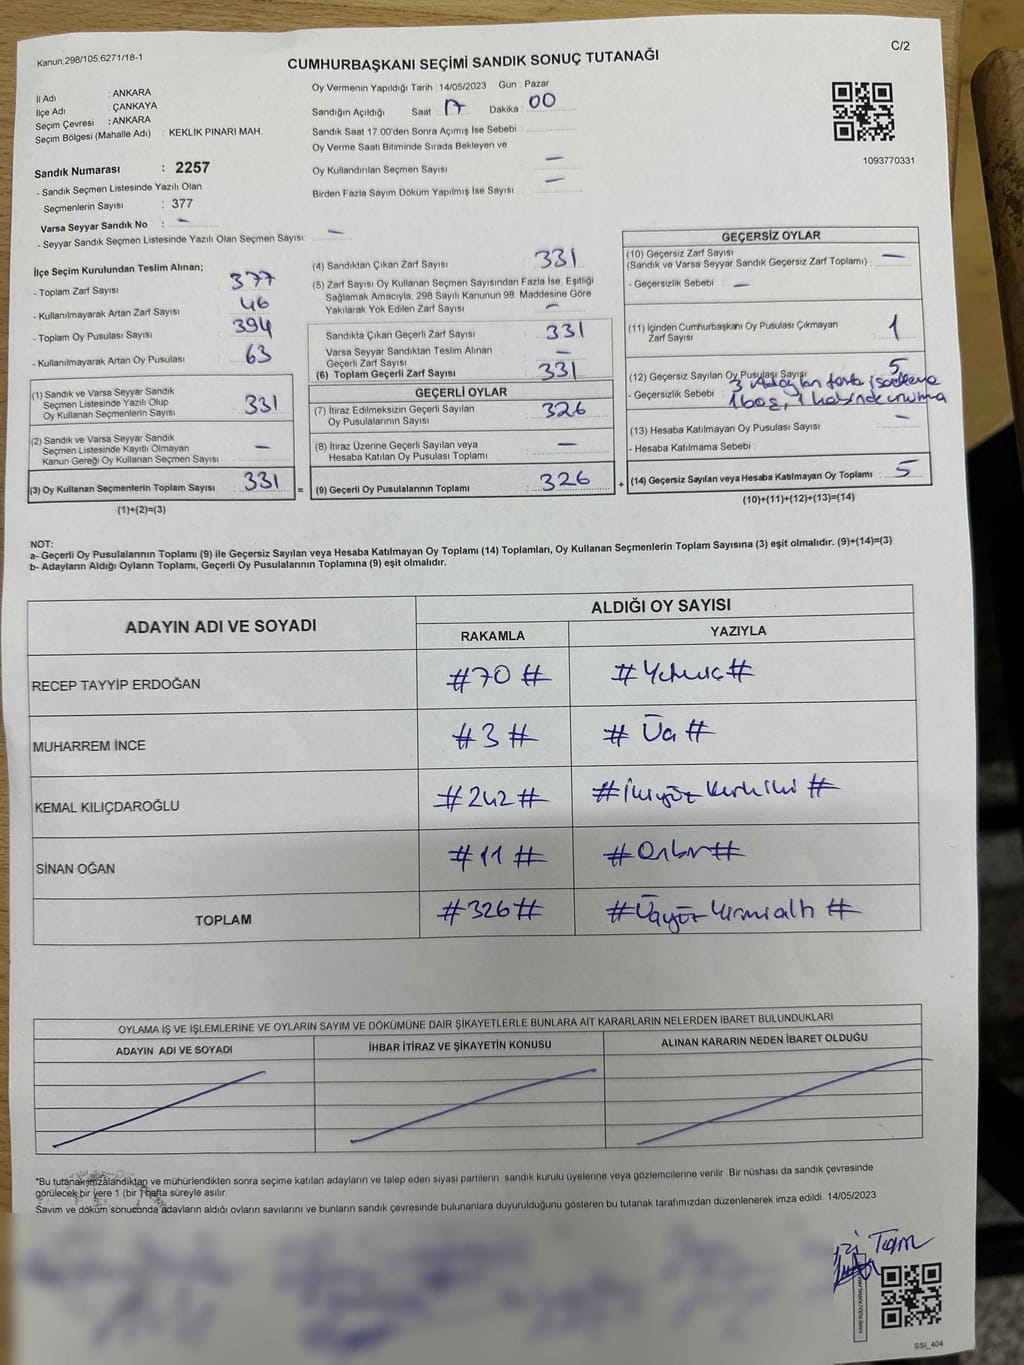 Kanun;298/105;6271/18-1
C/2
CUMHURBAŞKANI SEÇİMİ SANDIK SONUÇ TUTANAĞI
İl Adı : ANKARA
İlçe Adı : ÇANKAYA
Seçim Çevresi : ANKARA
Seçim Bölgesi (Mahalle Adı) : KEKLİK PINARI MAH.
Oy Vermenin Yapıldığı Tarih : 14/05/2023 Gün : Pazar
Sandığın Açıldığı Saat 17 Dakika : 00
Sandık Saat 17.00'den Sonra Açımış İse Sebebi :
Oy Verme Saati Bitiminde Sırada Bekleyen ve
Oy Kullandırılan Seçmen Sayısı —
Birden Fazla Sayım Döküm Yapılmış İse Sayısı —
1093770331
Sandık Numarası : 2257
- Sandık Seçmen Listesinde Yazılı Olan
Seçmenlerin Sayısı : 377
Varsa Seyyar Sandık No : —
- Seyyar Sandık Seçmen Listesinde Yazılı Olan Seçmen Sayısı : —
İlçe Seçim Kurulundan Teslim Alınan;
- Toplam Zarf Sayısı : 377
- Kullanılmayarak Artan Zarf Sayısı : 46
- Toplam Oy Pusulası Sayısı : 394
- Kullanılmayarak Artan Oy Pusulası : 63
(1) Sandık ve Varsa Seyyar Sandık
Seçmen Listesinde Yazılı Olup
Oy Kullanan Seçmenlerin Sayısı : 331
(2) Sandık ve Varsa Seyyar Sandık
Seçmen Listesinde Kayıtlı Olmayan
Kanun Gereği Oy Kullanan Seçmen Sayısı : —
(3) Oy Kullanan Seçmenlerin Toplam Sayısı : 331
(1)+(2)=(3)
=
(4) Sandıktan Çıkan Zarf Sayısı : 331
(5) Zarf Sayısı Oy Kullanan Seçmen Sayısından Fazla İse, Eşitliği
Sağlamak Amacıyla, 298 Sayılı Kanunun 98. Maddesine Göre
Yakılarak Yok Edilen Zarf Sayısı : —
Sandıkta Çıkan Geçerli Zarf Sayısı : 331
Varsa Seyyar Sandıktan Teslim Alınan
Geçerli Zarf Sayısı : —
(6) Toplam Geçerli Zarf Sayısı : 331
GEÇERLİ OYLAR
(7) İtiraz Edilmeksizin Geçerli Sayılan
Oy Pusulasının Sayısı : 326
(8) İtiraz Üzerine Geçerli Sayılan veya
Hesaba Katılan Oy Pusulası Toplamı : —
(9) Geçerli Oy Pusulalarının Toplamı : 326
+
GEÇERSİZ OYLAR
(10) Geçersiz Zarf Sayısı
(Sandık ve Varsa Seyyar Sandık Geçersiz Zarf Toplamı) : —
- Geçersizlik Sebebi : —
(11) İçinden Cumhurbaşkanı Oy Pusulası Çıkmayan
Zarf Sayısı : 1
(12) Geçersiz Sayılan Oy Pusulası Sayısı : 5
- Geçersizlik Sebebi : 3 Adaydan fazla
1 boş, 1
(13) Hesaba Katılmayan Oy Pusulası Sayısı : —
- Hesaba Katılmama Sebebi :
(14) Geçersiz Sayılan veya Hesaba Katılmayan Oy Toplamı : 5
(10)+(11)+(12)+(13)=(14)
NOT:
a- Geçerli Oy Pusulalarının Toplamı (9) ile Geçersiz Sayılan veya Hesaba Katılmayan Oy Toplamı (14) Toplamları, Oy Kullanan Seçmenlerin Toplam Sayısına (3) eşit olmalıdır. (9)+(14)=(3)
b- Adayların Aldığı Oyların Toplamı, Geçerli Oy Pusulalarının Toplamına (9) eşit olmalıdır.
ADAYIN ADI VE SOYADI ALDIĞI OY SAYISI
RAKAMLA YAZIYLA
RECEP TAYYİP ERDOĞAN #70# #Yetmiş#
MUHARREM İNCE #3# #Üç#
KEMAL KILIÇDAROĞLU #242# #İkiyüzkırkiki#
SİNAN OĞAN #11# #Onbir#
TOPLAM #326# #Üçyüzyirmialtı#
OYLAMA İŞ VE İŞLEMLERİNE VE OYLARIN SAYIM VE DÖKÜMÜNE DAİR ŞİKAYETLERLE BUNLARA AİT KARARLARIN NELERDEN İBARET BULUNDUKLARI
ADAYIN ADI VE SOYADI İHBAR İTİRAZ VE ŞİKAYETİN KONUSU ALINAN KARARIN NEDEN İBARET OLDUĞU
*Bu tutanak imzalandıktan ve mühürlendikten sonra seçime katılan adayların ve talep eden siyasi partilerin sandık kurulu üyelerine veya gözlemcilerine verilir. Bir nüshası da sandık çevresinde
görülecek bir yere 1 (bir) hafta süreyle asılır.
Sayım ve döküm sonucunda adayların aldığı oyların sayılarını ve bunların sandık çevresinde bulunanlara duyurulduğunu gösteren bu tutanak tarafımızdan düzenlenerek imza edildi. 14/05/2023
SSI_404